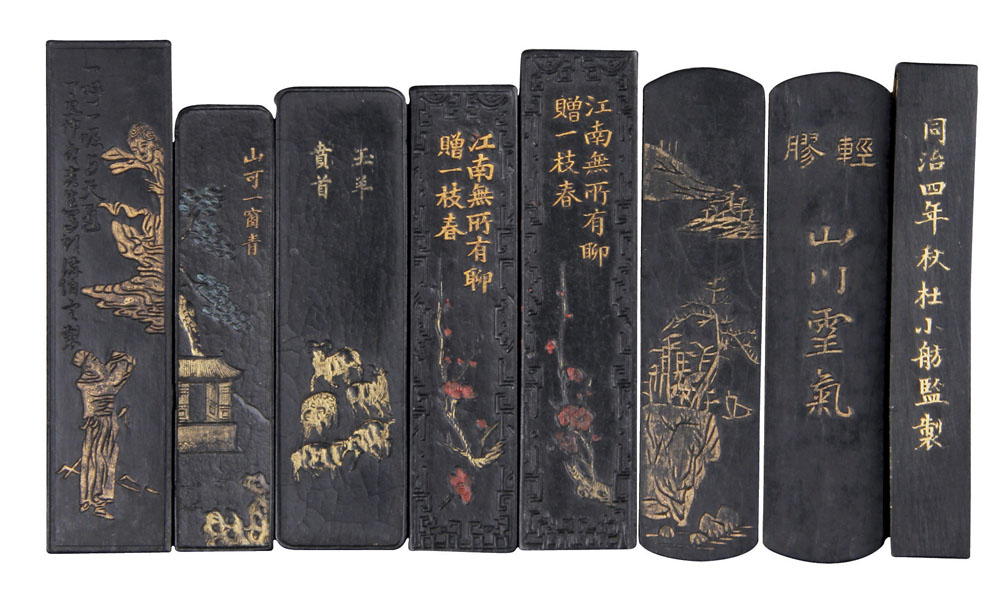 山可一窗青
玉羊
賁首
江南無所有聊
贈一枝春
江南無所有聊
贈一枝春
輕膠
山川靈氣
同治四年秋杜小舫監製